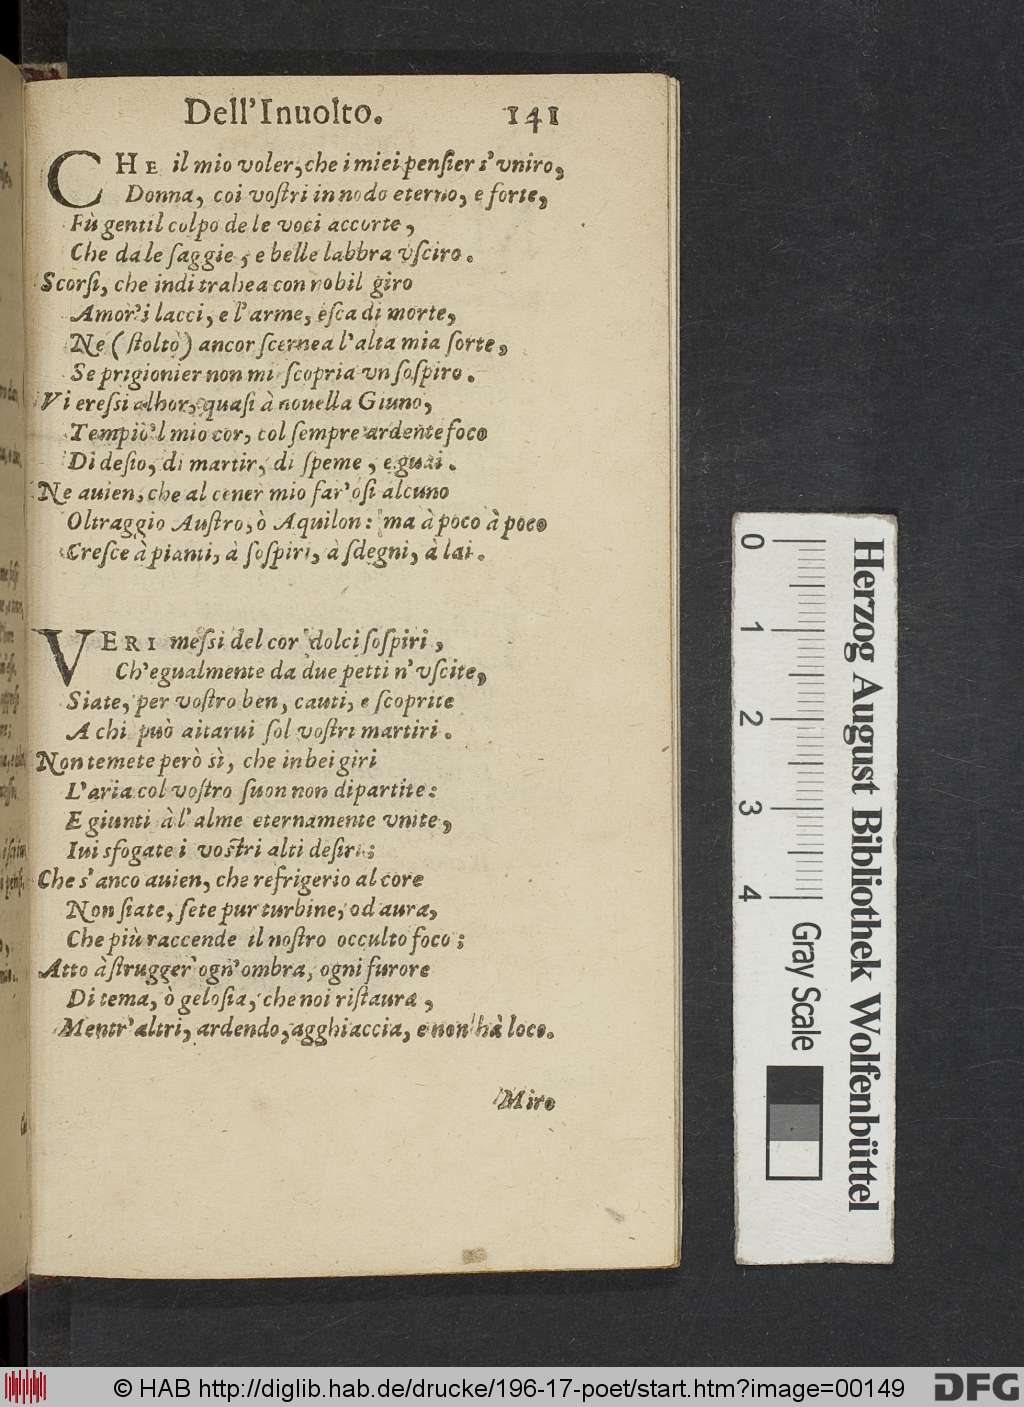 Dell'Inuolto. 141
CHE il mio voler, che i miei penſier s'vniro,
Donna, coi voſtri in nodo eterno, e forte,
Fù gentil colpo de le voci accorte,
Che da le ſaggie, e belle labbra vſciro.
Scorſi, che indi trahea con nobil giro
Amor'i lacci, e l'arme, eſca di morte,
Ne (ſtolto) ancor ſcernea l'alta mia ſorte,
Se prigionier non mi ſcopria vn ſoſpiro.
Vi ereſsi alhor, quaſi à nouella Giuno,
Tempio'l mio cor, col ſempre ardente foco
Di deſio, di martir, di ſpeme, e guai.
Ne auien, che al cener mio far'oſi alcuno
Oltraggio Auſtro, ò Aquilon: ma à poco à poco
Creſce à pianti, à ſoſpiri, à ſdegni, à lai.
VERI meſsi del cor dolci ſoſpiri,
Ch'egualmente da due petti n'vſcite,
Siate, per voſtro ben, cauti, e ſcoprite
A chi può aitarui ſol voſtri martiri.
Non temete però sì, che in bei giri
L'aria col voſtro ſuon non dipartite:
E giunti à l'alme eternamente vnite,
Iui sfogate i voſtri alti deſiri;
Che s'anco auien, che refrigerio al core
Non ſiate, ſete pur turbine, od aura,
Che più raccende il noſtro occulto foco;
Atto à ſtrugger ogn'ombra, ogni furore
Di tema, ò geloſia, che noi riſtaura,
Mentr'altri, ardendo, agghiaccia, e non hà loco.
Miro
0 1 2 3 4
Gray Scale
Herzog August Bibliothek Wolfenbüttel
© HAB http://diglib.hab.de/drucke/196-17-poet/start.htm?image=00149
DFG